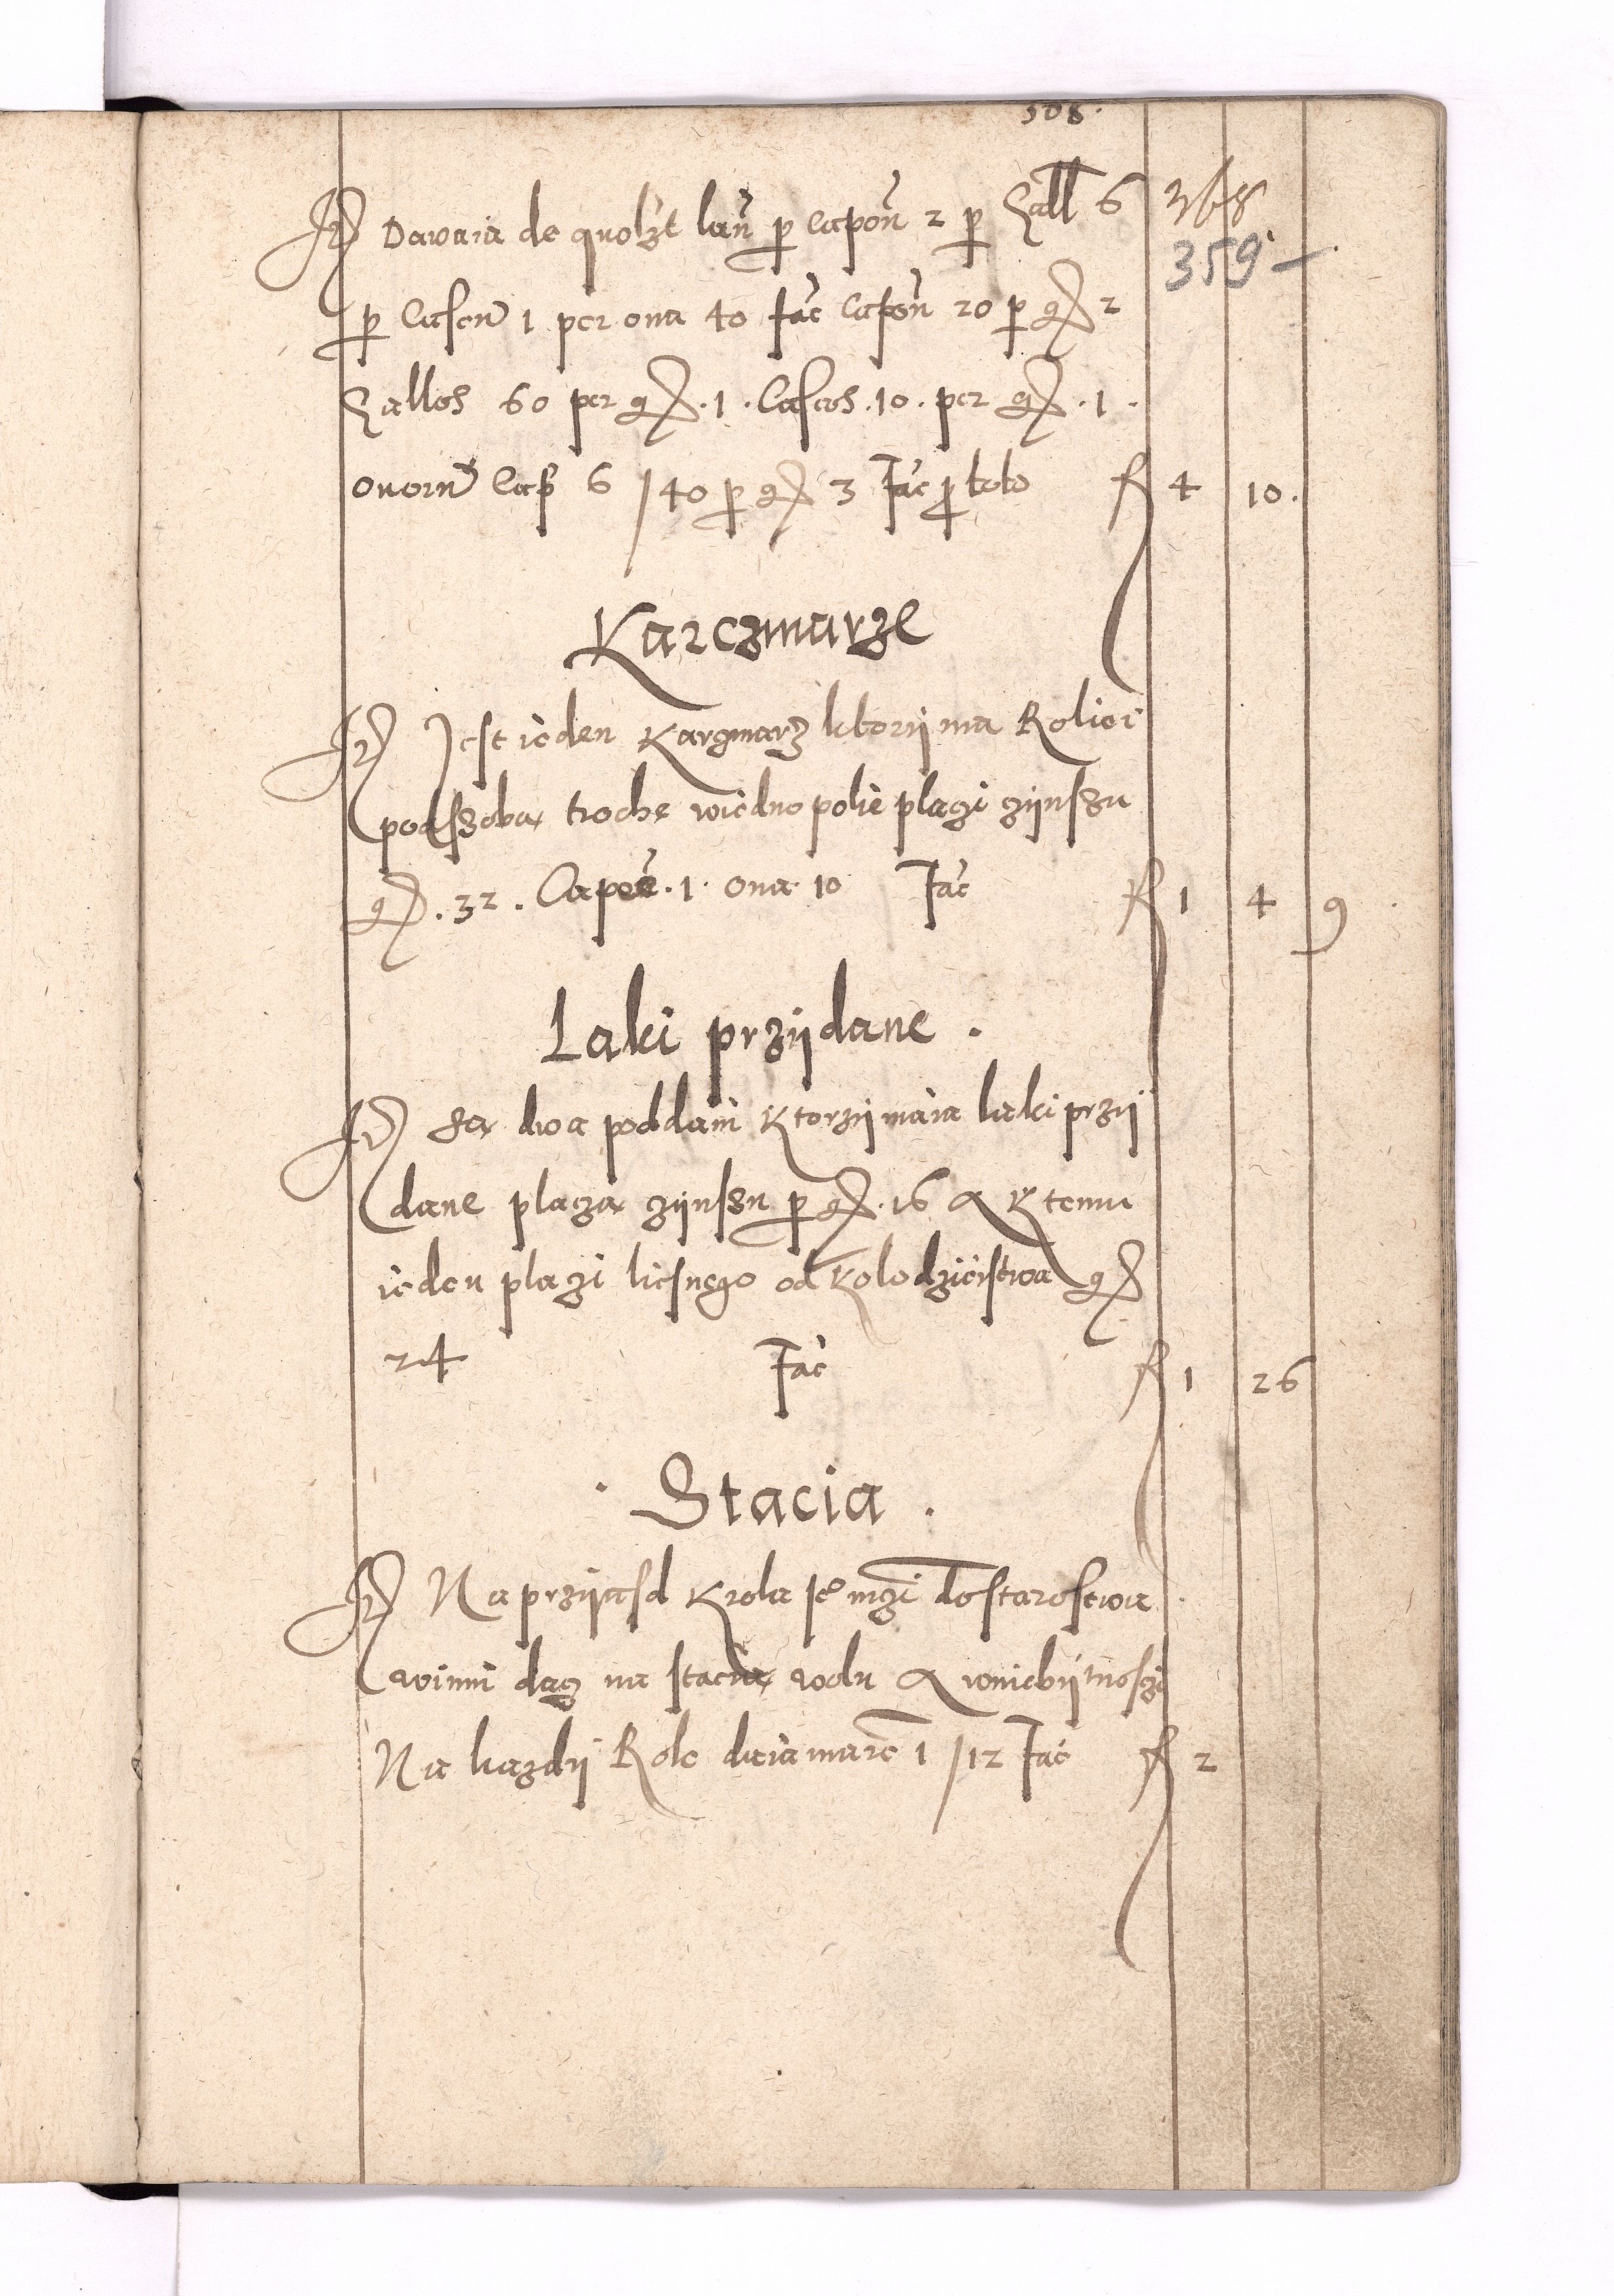 508.
358
359 –
It Dawaia de quolzt lań p capoń 2 p Gall 6
p Caseu 1 per oua 40 fać capoń 20 p gr 2
Gallos 60 per gr . 1 . Caseos . 10 . per gr . 1 .
ouorū Cap 6 / 40 p gr 3 fać p toto f 4 10.
Karczmarze
It Jest ieden Karzmarz ktorÿ ma Roliei
pod szoba troche wiedno polie placzi czÿnszu
gr . 32 . Capoē . 1 . Oua 10 fać f 1 4 9
Laki przÿdane .
It Sa dwa poddani Ktorzÿ maia laki przÿ
dane placza czÿnszu p gr . 16 A K temu
ieden placzi liesnego od Kolodzieistwa gr
24 fać f 1 26
. Stacia .
It Na przÿiasd Krola Je mczi do starostwa
winni dacz na stacia wolu A wniebÿtnosczi
Na kazdÿ Rok daia marc 1 / 12 fać f 2